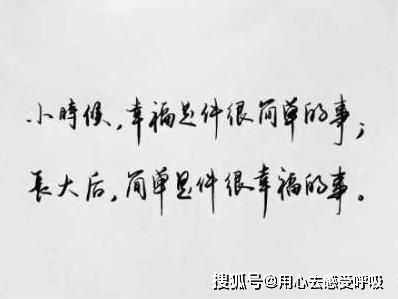 小時候，幸福是件很简单的事；
長大后，简单是件很幸福的事。
搜狐号@用心去感受呼吸